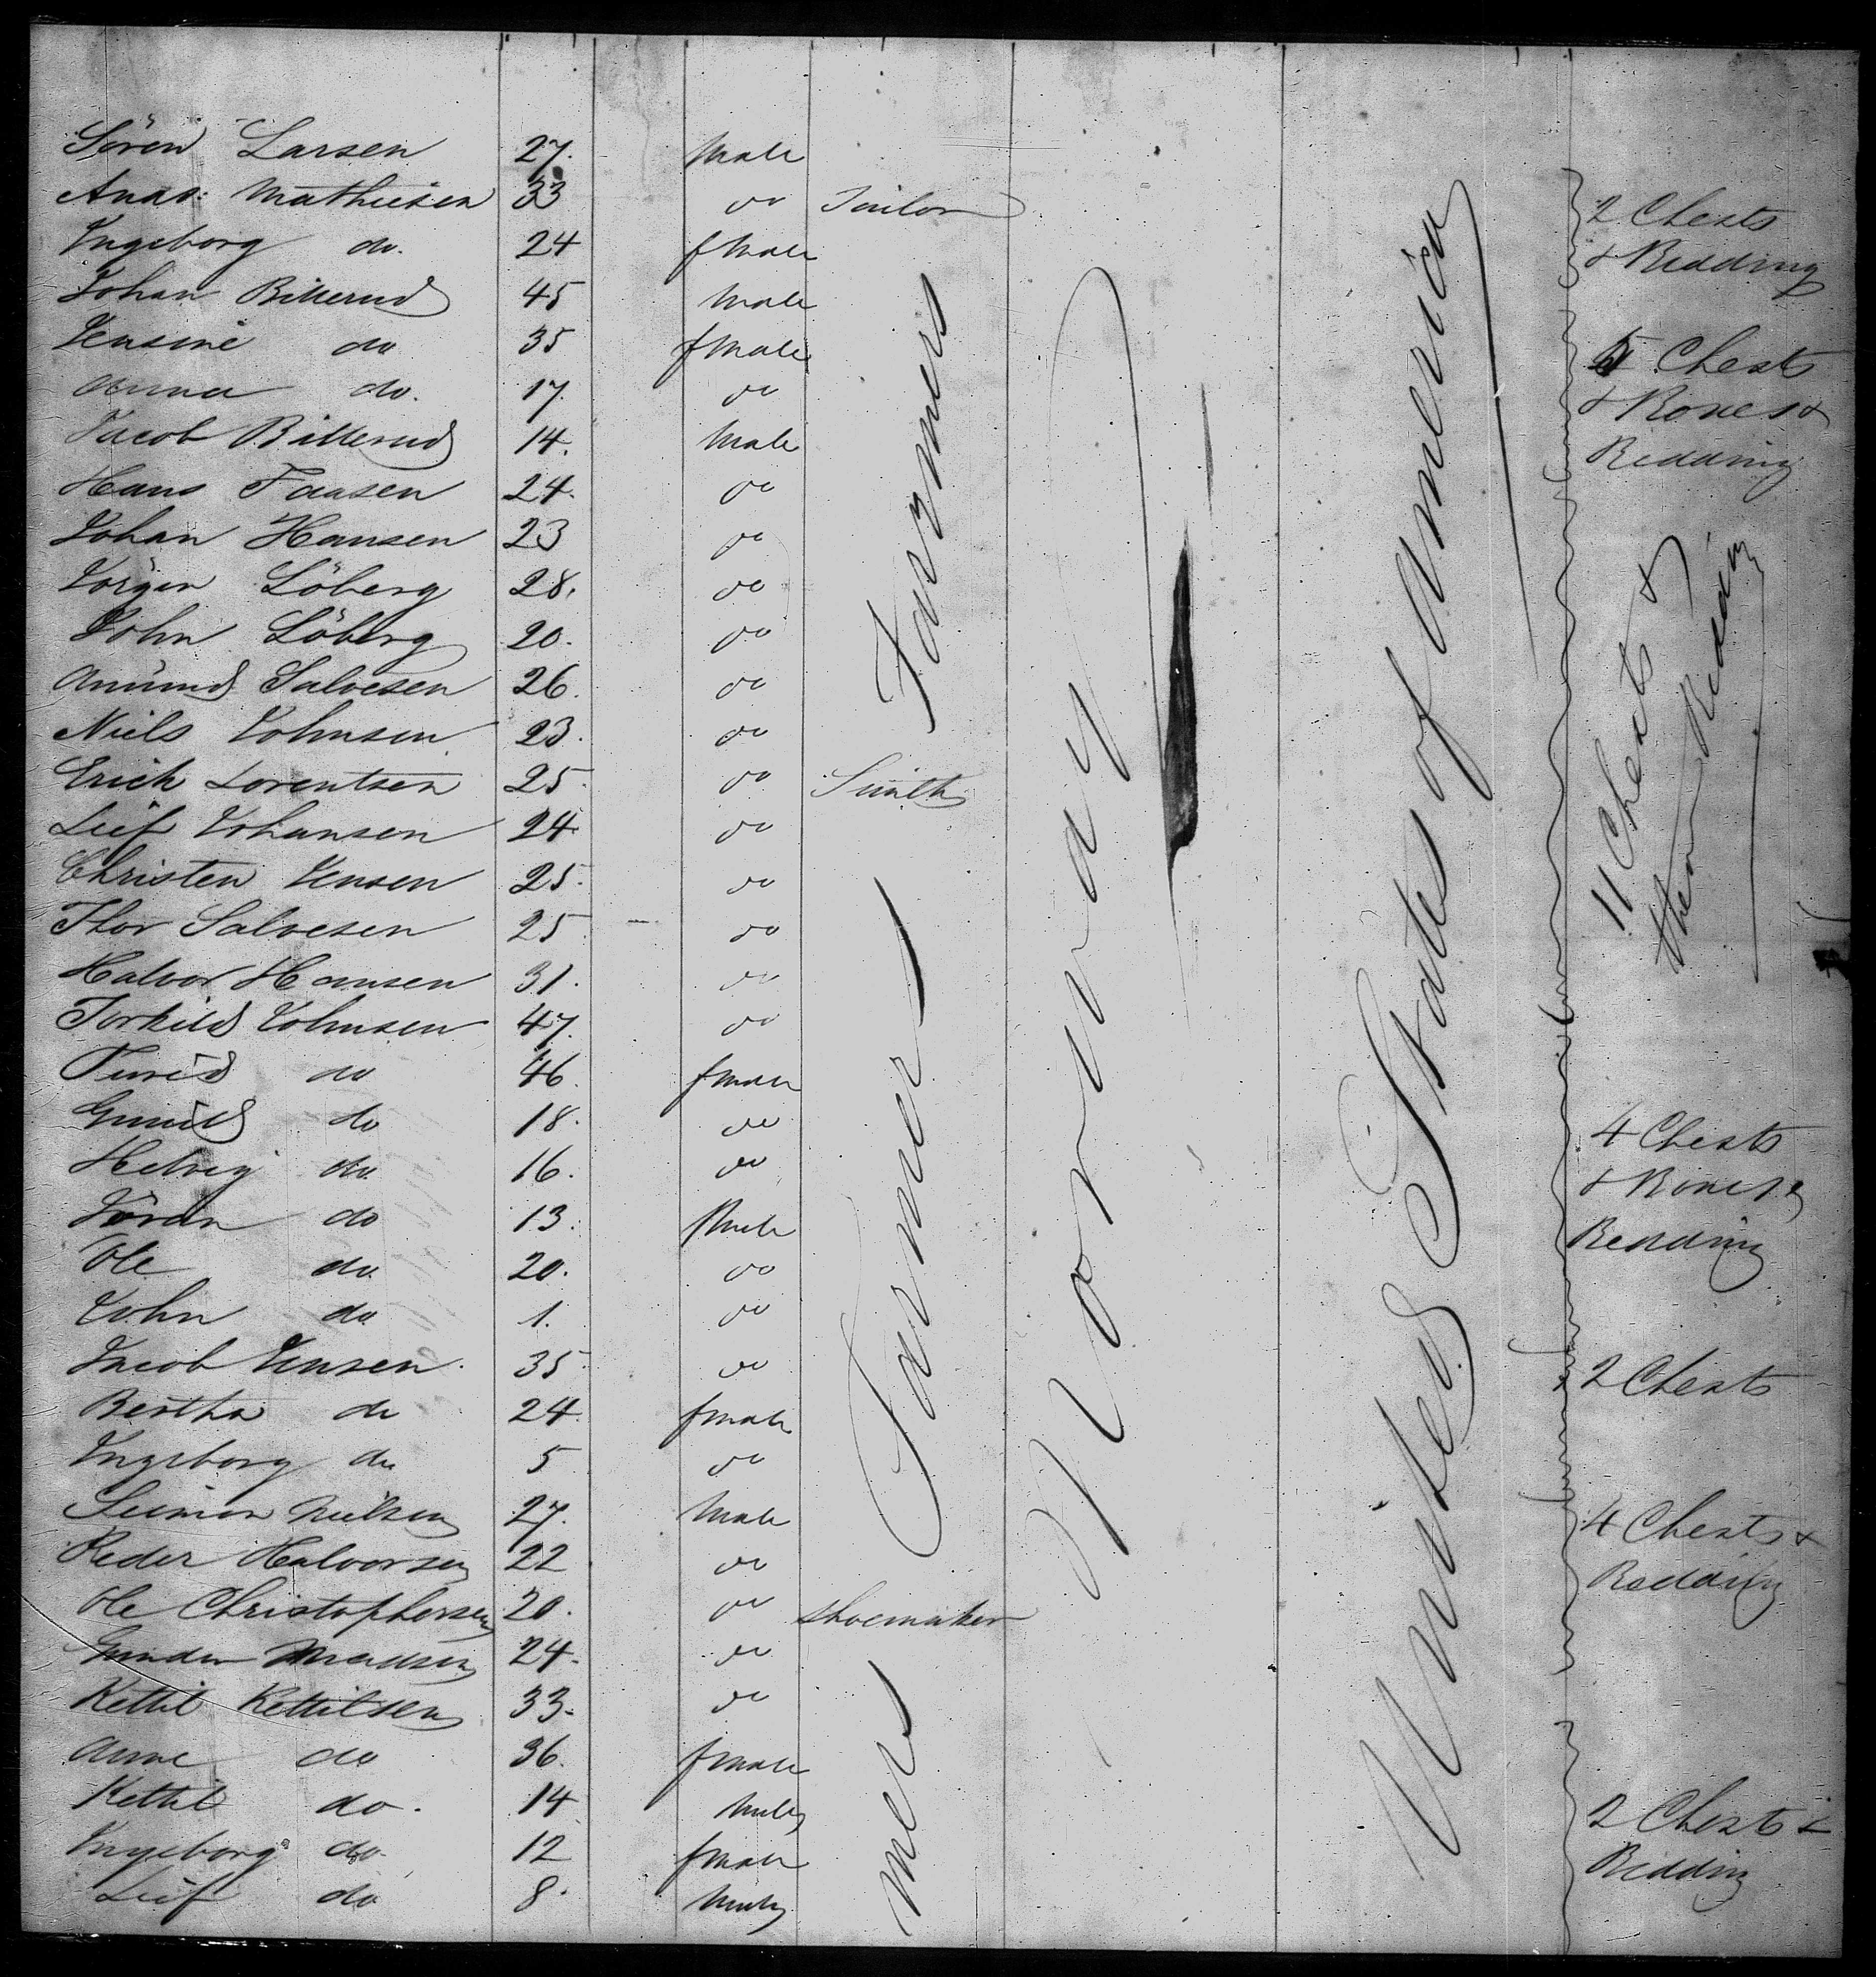 Sören Larsen 27. Male
Andr: Mathiesen 33 do Tailor
Ingeborg do. 24 fmale
Johan Billerud 45 Male
Jensine do 35 fmale
Anna do. 17. do
Jacob Billerud 14. Male
Hans Faasen 24. do
Johan Hansen 23 do
Jörgen Löberg 28. do
John Löberg 20. do
Amund Salvesen 26. do
Niels Johnsen 23. do
Erich Lorentsen 25. do Smith
Leif Johansen 24 do
Christen Jensen 25. do
Thor Salvesen 25 do
Halvor Hansen 31. do
Torkild Johnsen 47. do
Turid do 46. fmale
Gunild do 18. do
Helvig do. 16. do
Jöran do 13. Male
Ole do. 20. do
John do. 1. do
Jacob Jensen. 35. do
Bertha do 24. fmale
Ingeborg do 5 do
Seimon Nielsen 27. Male
Peder Halvorsen 22 do
Ole Christophersen 20. do Shoemaker
Gunder Madsen 24. do
Kettil Kettilsen 33. do
Anne do 36. fmale
Kettil do. 14 Male
Ingeborg do. 12 fmale
Leif do 8. Male
Farmers
Farmer
mers
Norway
United States of America
2 Chests
& Bedding
5 Chests
& Boxes &
Bedding
11 Chests &
their Bedding
4 Chests
& Boxes &
Bedding
2 Chests
4 Chests &
Bedding
2 Chests &
Bedding